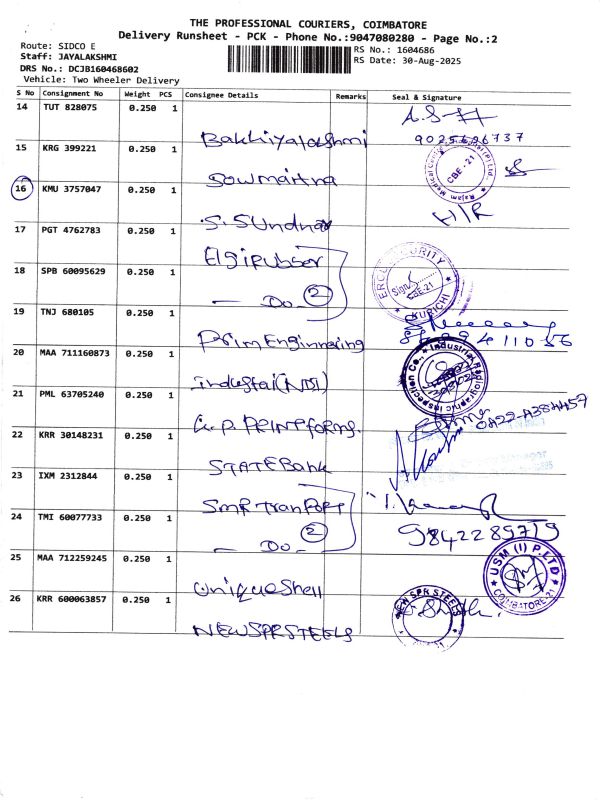 THE PROFESSIONAL COURIERS, COIMBATORE
Delivery Runsheet - PCK - Phone No.:9047080280 - Page No.:2
Route: SIDCO E
RS No.: 1604686
Staff: JAYALAKSHMI
RS Date: 30-Aug-2025
DRS No.: DCJB160468602
Vehicle: Two Wheeler Delivery
S No Consignment No Weight PCS Consignee Details Remarks Seal & Signature
14 TUT 828075 0.250 1
Bakhiyalakshmi
15 KRG 399221 0.250 1
CBE-21
Gowmaitra
16 KMU 3757047 0.250 1
S. Sundhar
H/R
17 PGT 4762783 0.250 1
Elgi Rubber
SECURITY
18 SPB 60095629 0.250 1
Sign
CBE-21
KURICHI
— Do — 2
19 TNJ 680105 0.250 1
Prim Enginnering
20 MAA 711160873 0.250 1
Industrial Radiographic Inspection Co.,
industrial (NDT)
21 PML 63705240 0.250 1
G.P. PRINT forms.
0422-
22 KRR 30148231 0.250 1
STATE Bank
23 IXM 2312844 0.250 1
SMR Tranport
24 TMI 60077733 0.250 1
9842289719
— Do — 2
25 MAA 712259245 0.250 1
USM (I) P.LTD
COIMBATORE-21
Unique Shell
26 KRR 600063857 0.250 1
NEW SPR STEELS
NEW SPR STEELS